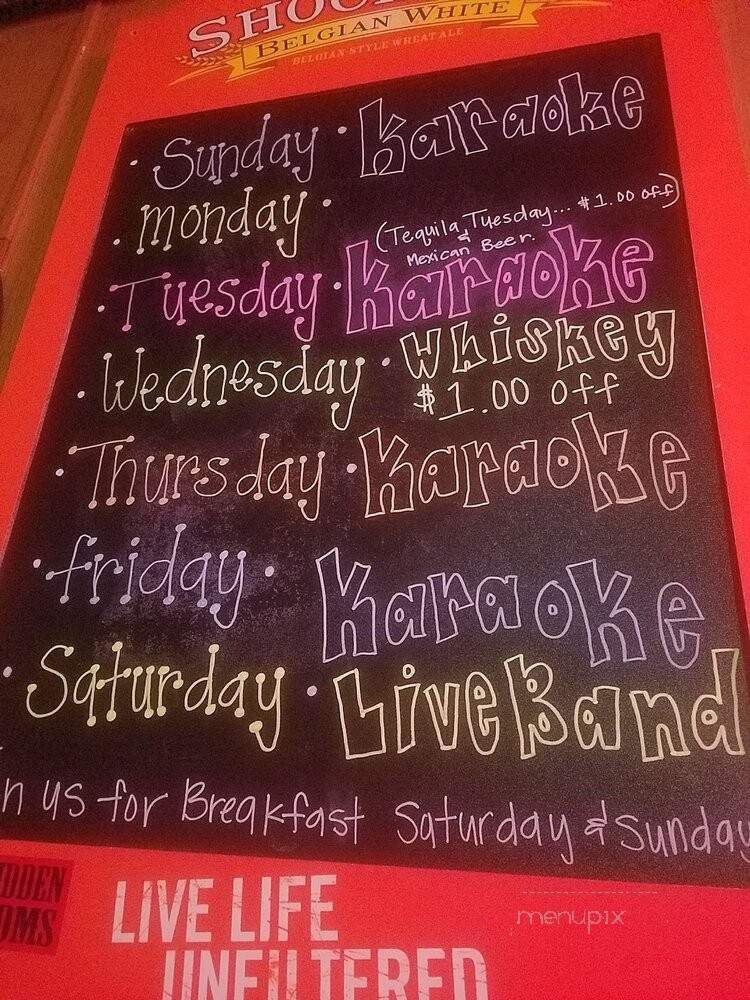 BELGIAN WHITE
BELGIAN-STYLE WHEAT ALE
• Sunday • Karaoke
• Monday •
(Tequila Tuesday... $1.00 off)
& Mexican Beer.
• Tuesday • Karaoke
• Wednesday • Whiskey
$1.00 off
• Thursday • Karaoke
• Friday • Karaoke
• Saturday • Live Band
n us for Breakfast Saturday & Sunday
LIVE LIFE
UNFILTERED
menupix